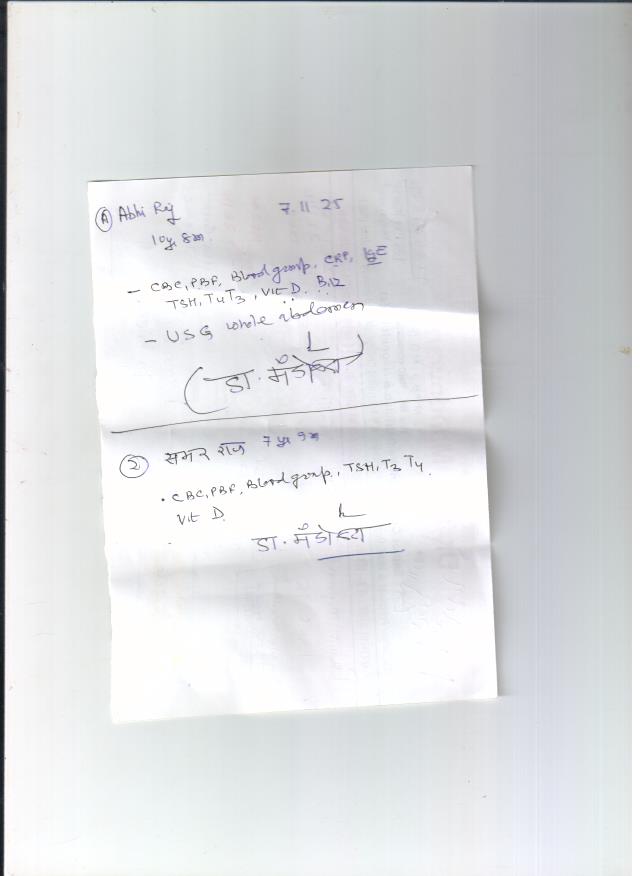 (A) Abhi Raj 7.11.25
10yr 8m
- CBC, PBF, Blood group, CRP, IgE
TSH, T4 T3, Vit D. B12
- USG whole abdomen
(डा.
(2) समर राज 7 yr 9m
• CBC, PBF, Blood group, TSH, T3 T4.
Vit D.
डा.